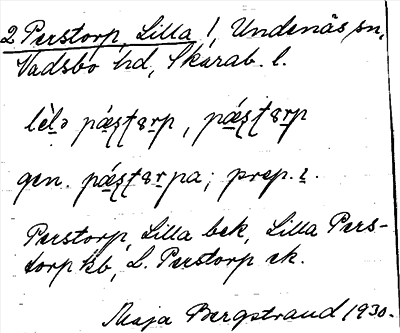 2 Perstorp, Lilla /, Undenäs sn,
Vadsbo hd, Skarab. l.
lèlə pǽʂʈɐrp, pǽʂʈɐrp
gen. pǽʂʈɐrpa; prep. ɪ.
Perstorp, Lilla bek, Lilla Pers-
torp kb, L. Perstorp ek.
Maja Bergstrand 1930.